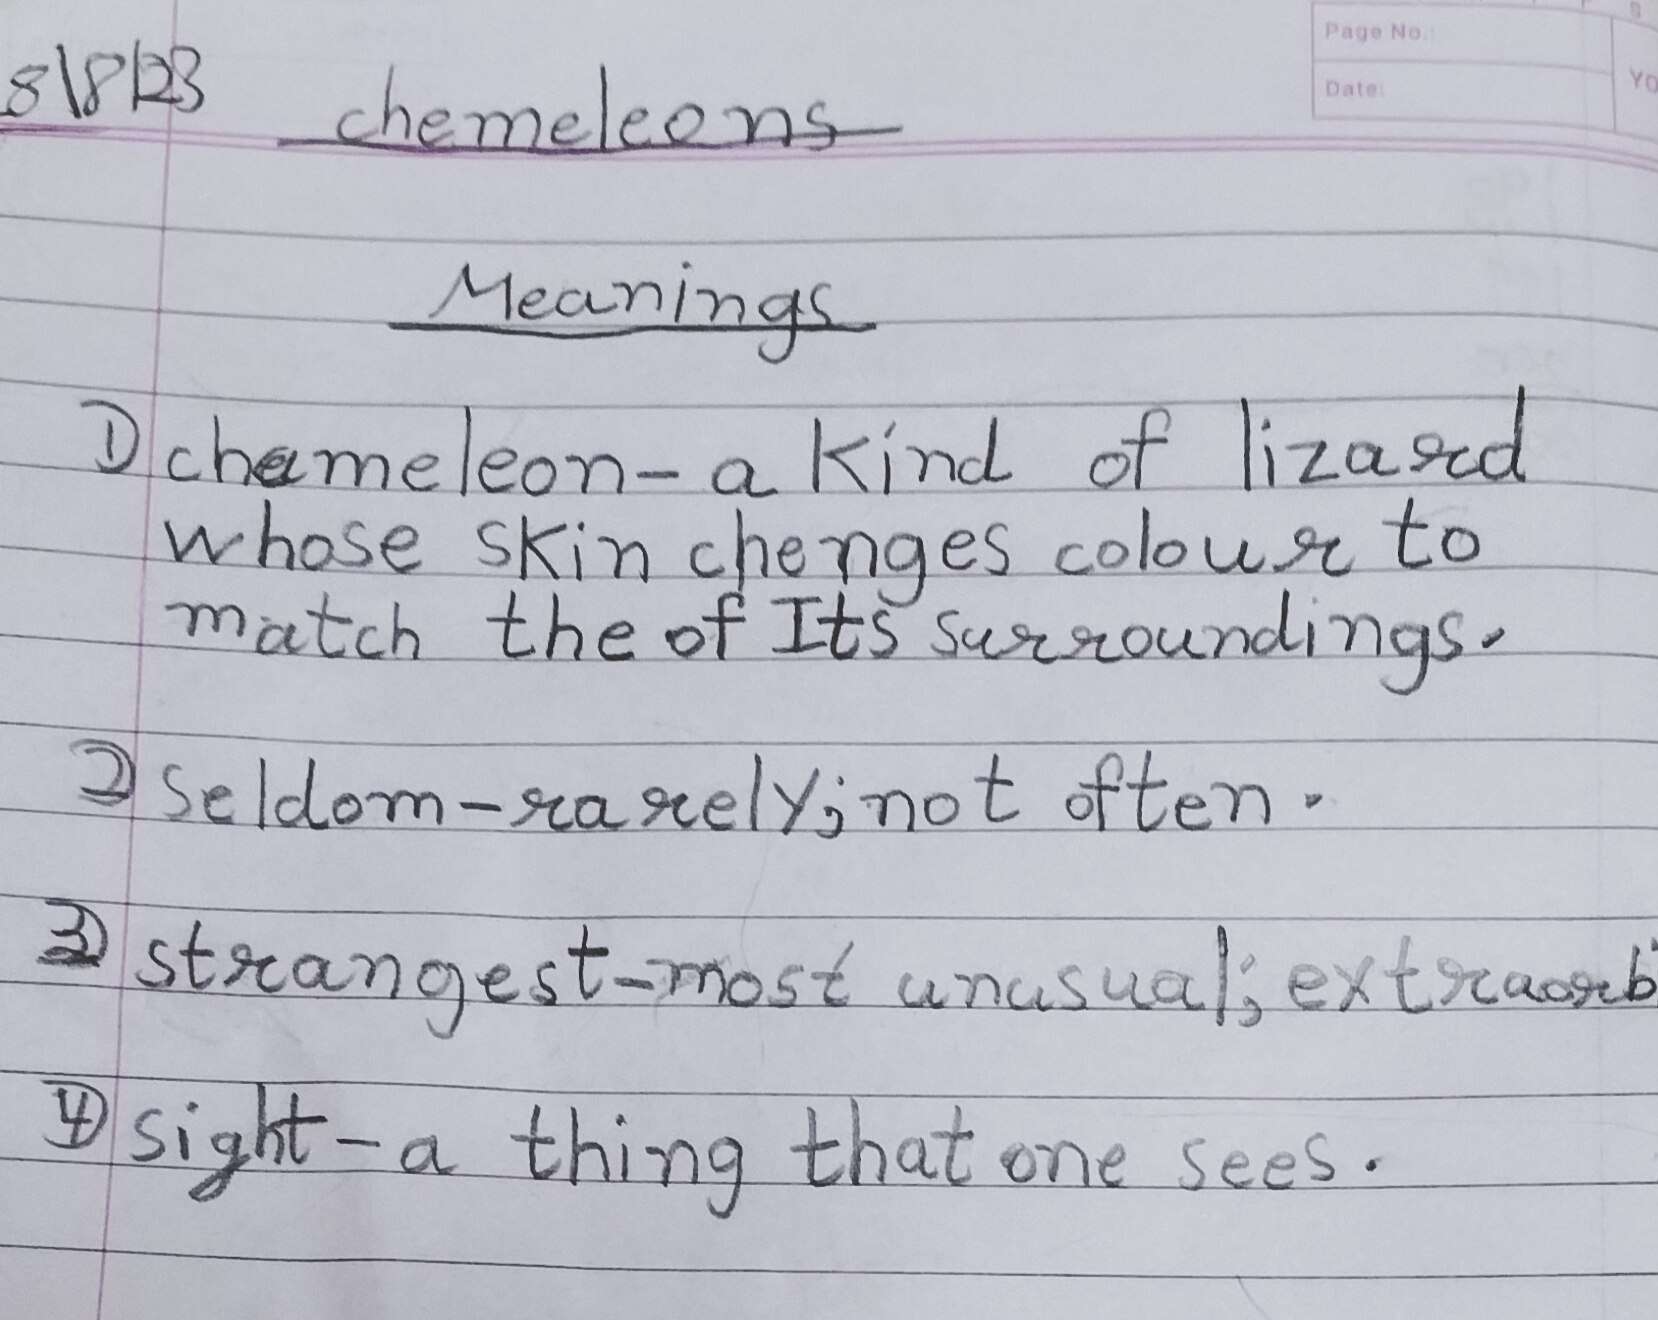 Page No.:
Date:
YO
8\8\23 chemeleons
Meanings
1) chameleon- a kind of lizard
whose skin chenges colour to
match the of Its surroundings.
2) Seldom-rarely; not often.
3) strangest-most unusual; extraorb
4) sight-a thing that one sees.